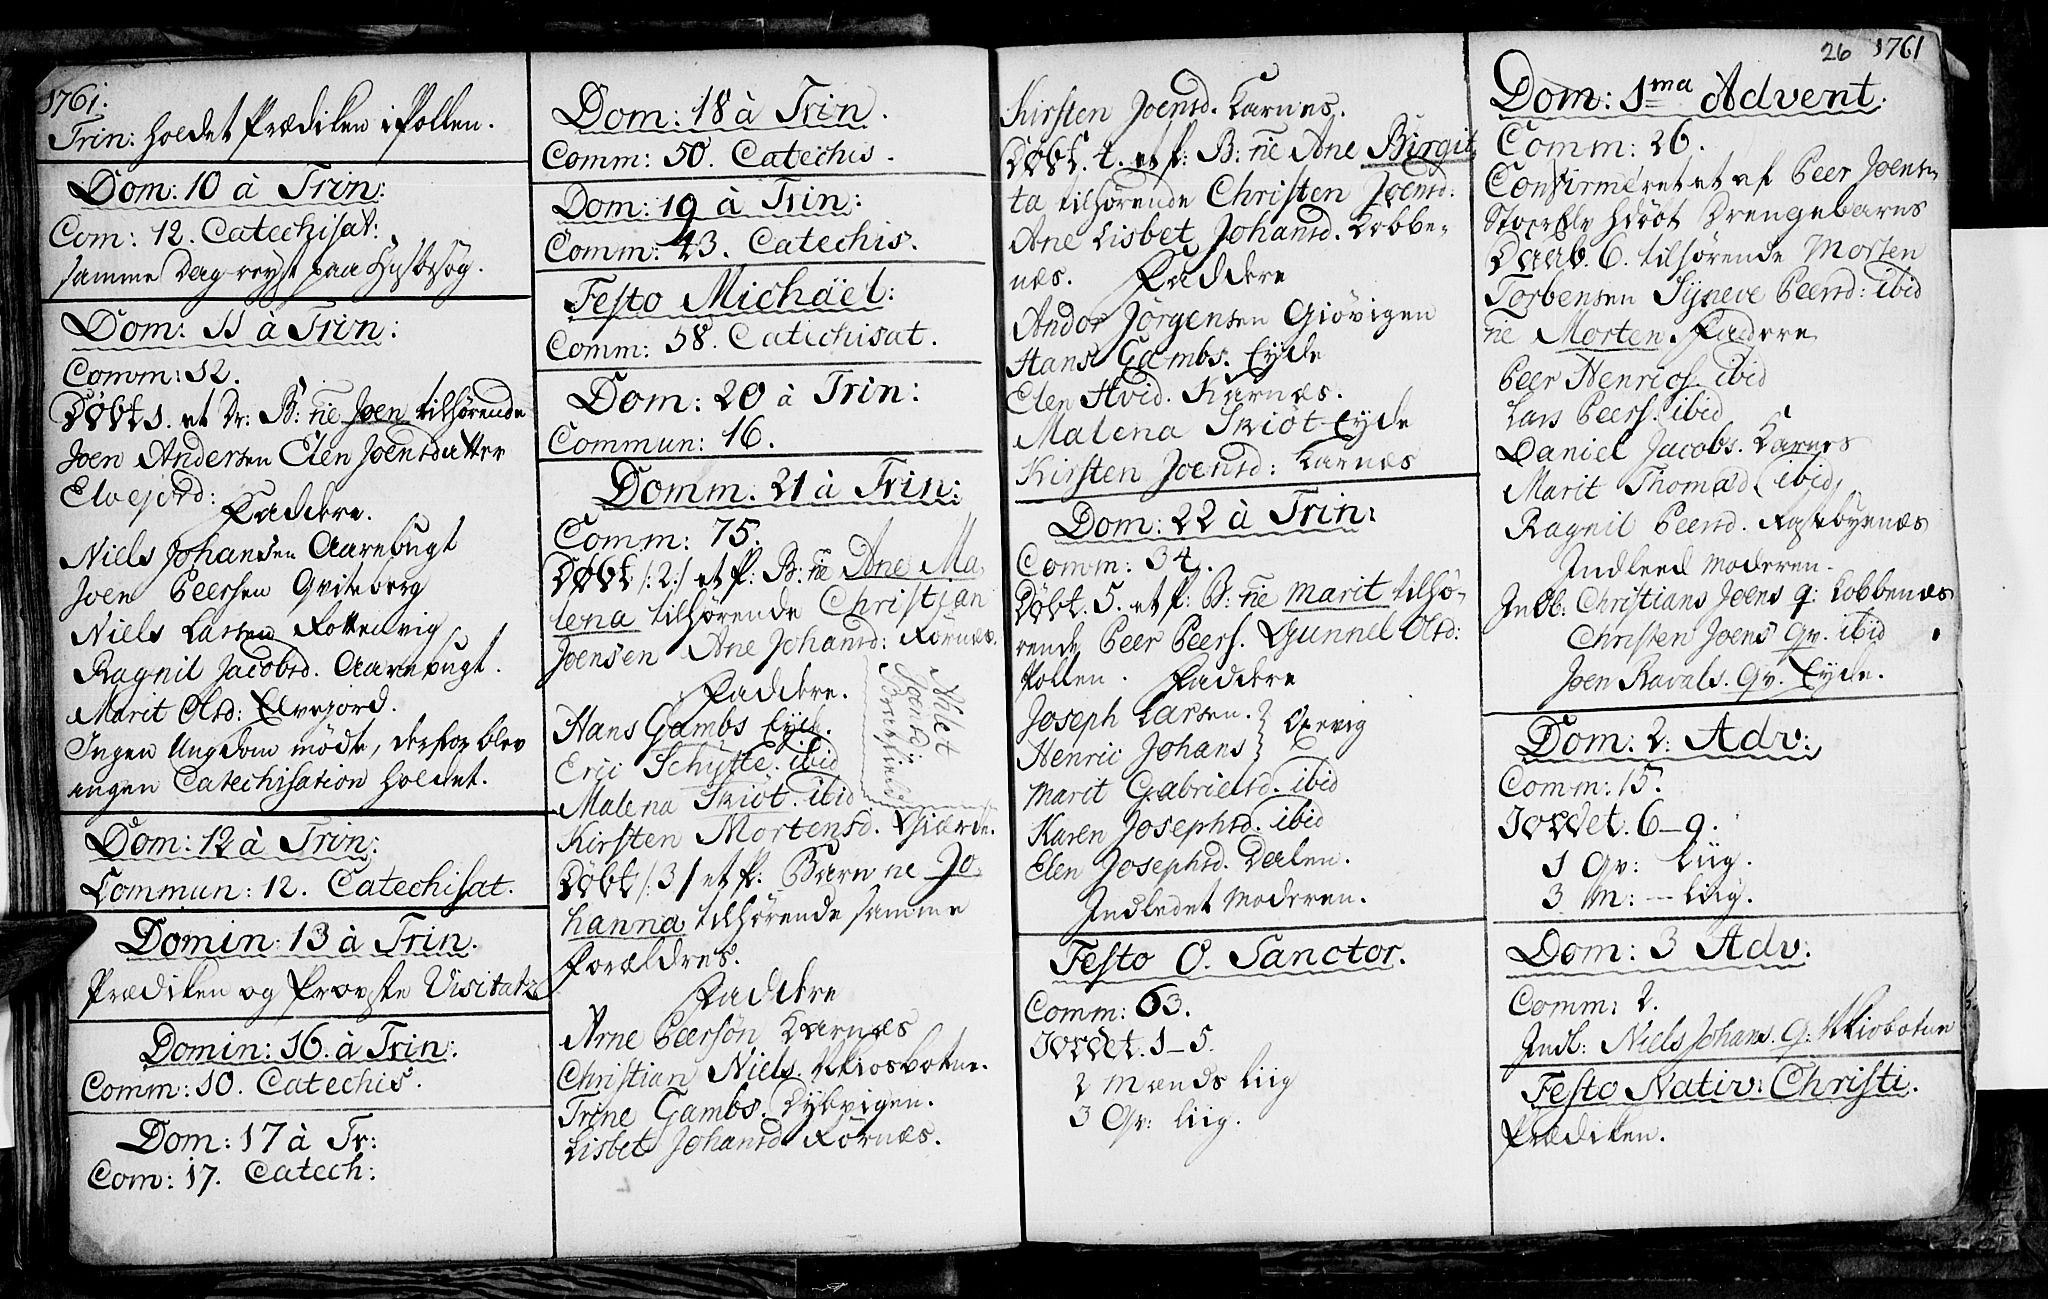 1761.
Trin: holdet Prædiken i Pollen.
Dom: 10 à Trin:
Com: 12. Catechisat:
samme Dag reyst paa
Dom: 11 à Trin:
Comm: 12.
Døbt 1. et Dr: B: ñe Joen tilhørende
Joen Andersen Elen Joensdatter
Elvejord: Faddere.
Niels Johansen Aarebugt
Joen Peersen Qviteberg
Niels Larsen Rottenvig
Ragnil Jacobsd. Aarebugt.
Marit Olsd: Elvejord.
Ingen Ungdom mødte, derfor blev
ingen Catechisation holdet.
Dom: 12 à Trin:
Commun: 12. Catechisat.
Domin: 13 à Trin.
Prædiken og Provste Visitatz
Domin: 16. à Trin:
Comm: 10. Catechis.
Dom: 17 à Tr:
Com: 17. Catech:
Dom: 18 à Trin.
Comm: 50. Catechis.
Dom: 19 à Trin:
Comm: 43. Catechis.
Festo Michaël:
Comm: 58. Catechisat.
Dom: 20 à Trin:
Commun: 16.
Domm. 21 à Trin:
Comm: 75.
Døbt /:2:/ et P: B: ñe Ane Ma-
lena tilhørende Christian
Joensen Ane Johansd: Rörnæs.
Faddere.
Nilet
Joensd:
Hans Gambs Eyde.
Eric Schytte. ibid
Malena Skiöt. ibid
Kirsten Mortensd. Giærde.
Døbt /:3/ et P: Barn ne Jo-
hanna tilhørende samme
Forældres.
Faddere
Arne Peersøn Karnæs
Christian Niels. Skiosbotne.
Trine Gambs. Dybvigen.
Lisbet Johansd Rörnæs.
Kirsten Joensd. Karnes.
Døbt. 4. et P: B: ñe Ane Birgit
ta tilhørende Christen Joensd:
Ane Lisbet Johansd. Kobbe-
næs. Faddere
Andor Jörgensen Giövigen
Hans Gambs. Eyde
Elen Hvid. Karnæs.
Malena Skiöt Eyde
Kirsten Joensd: Karnæs
Dom: 22 à Trin:
Comm: 34.
Døbt. 5. et P: B: ñe Marit tilhø-
rende Peer Peers. Gunnel Olsd:
Pollen. Faddere
Joseph Larsen.
Henric Johans } Oxevig
Marit Gabrielsd. ibid
Karen Josephsd. ibid
Elen Josephsd. Dalen.
Indledet Moderen.
Festo O. Sanctor.
Comm: 63.
Jordet. 1–5.
2 Mænds Liig
3 Qv: Liig.
26 1761
Dom: 1ma Advent.
Comm: 26.
Confirmeret et af Peer Joens
hdöbt Drengebarns
Daab. 6. tilhørende Morten
Torbensen Syneve Peersd: ibid
ñe Morten. Faddere
Peer Henrics. ibid
Lars Peers. ibid
Daniel Jacobs. Karnes
Marit Thomasd ibid
Ragnil Peersd.
Indleed Moderen.
Indl: Christians Joens q: Kobbenæs
Christen Joens Qv. ibid
Joen Ravals. Qv. Eyde.
Dom: 2: Adv:
Comm: 15.
Jordet. 6–9.
1 Qv: Liig.
3 M: — Liig.
Dom: 3 Adv:
Comm: 2.
Indl: Niels Johans. Q: Skiobotne
Festo Nativ: Christi.
Prædiken.